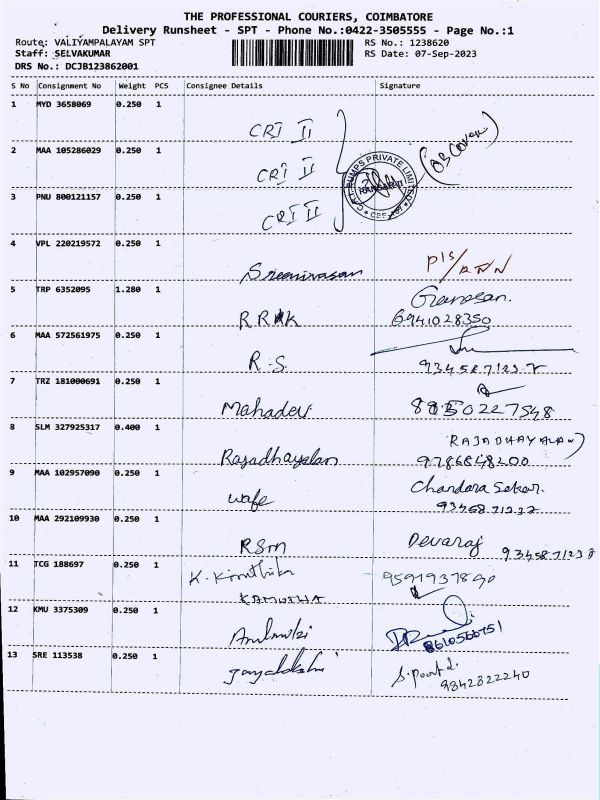 THE PROFESSIONAL COURIERS, COIMBATORE
Delivery Runsheet - SPT - Phone No.:0422-3505555 - Page No.:1
Route: VALIYAMPALAYAM SPT RS No.: 1238620
Staff: SELVAKUMAR RS Date: 07-Sep-2023
DRS No.: DCJB123862001
S No Consignment No Weight PCS Consignee Details Signature
1 MYD 3658069 0.250 1 CRI II
2 MAA 105286029 0.250 1 CRI II
3 PNU 800121157 0.250 1 CRI II
PUMPS PRIVATE LIMITED
4 VPL 220219572 0.250 1 Sreenivasan
5 TRP 6352095 1.280 1 RRK Ganesan.
6941028350
6 MAA 572561975 0.250 1 R.S.
7 TRZ 181000691 0.250 1 Mahadev 8850227548
8 SLM 327925317 0.400 1 Rajadhayalan RAJADHAYALAN
9786848200
9 MAA 102957090 0.250 1 wafe Chandara Sekar.
10 MAA 292109930 0.250 1 RSm Devaraj
11 TCG 188697 0.250 1 K. Kiruthika
12 KMU 3375309 0.250 1 8610566751
13 SRE 113538 0.250 1 Jayalakshi
9842822240